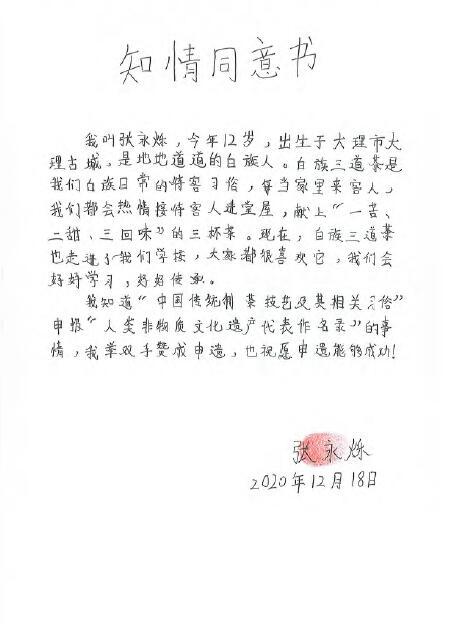 知情同意书
我叫张永烁，今年12岁，出生于大理市大
理古城，是地地道道的白族人。白族三道茶是
我们白族日常的待客习俗，每当家里来客人，
我们都会热情接待客人进堂屋，献上“一苦、
二甜、三回味”的三杯茶。现在，白族三道茶
也走进了我们学校，大家都很喜欢它，我们会
好好学习，好好传承。
我知道“中国传统制茶技艺及其相关习俗”
申报“人类非物质文化遗产代表作名录”的事
情，我举双手赞成申遗，也祝愿申遗能够成功！
张永烁
2020年12月18日